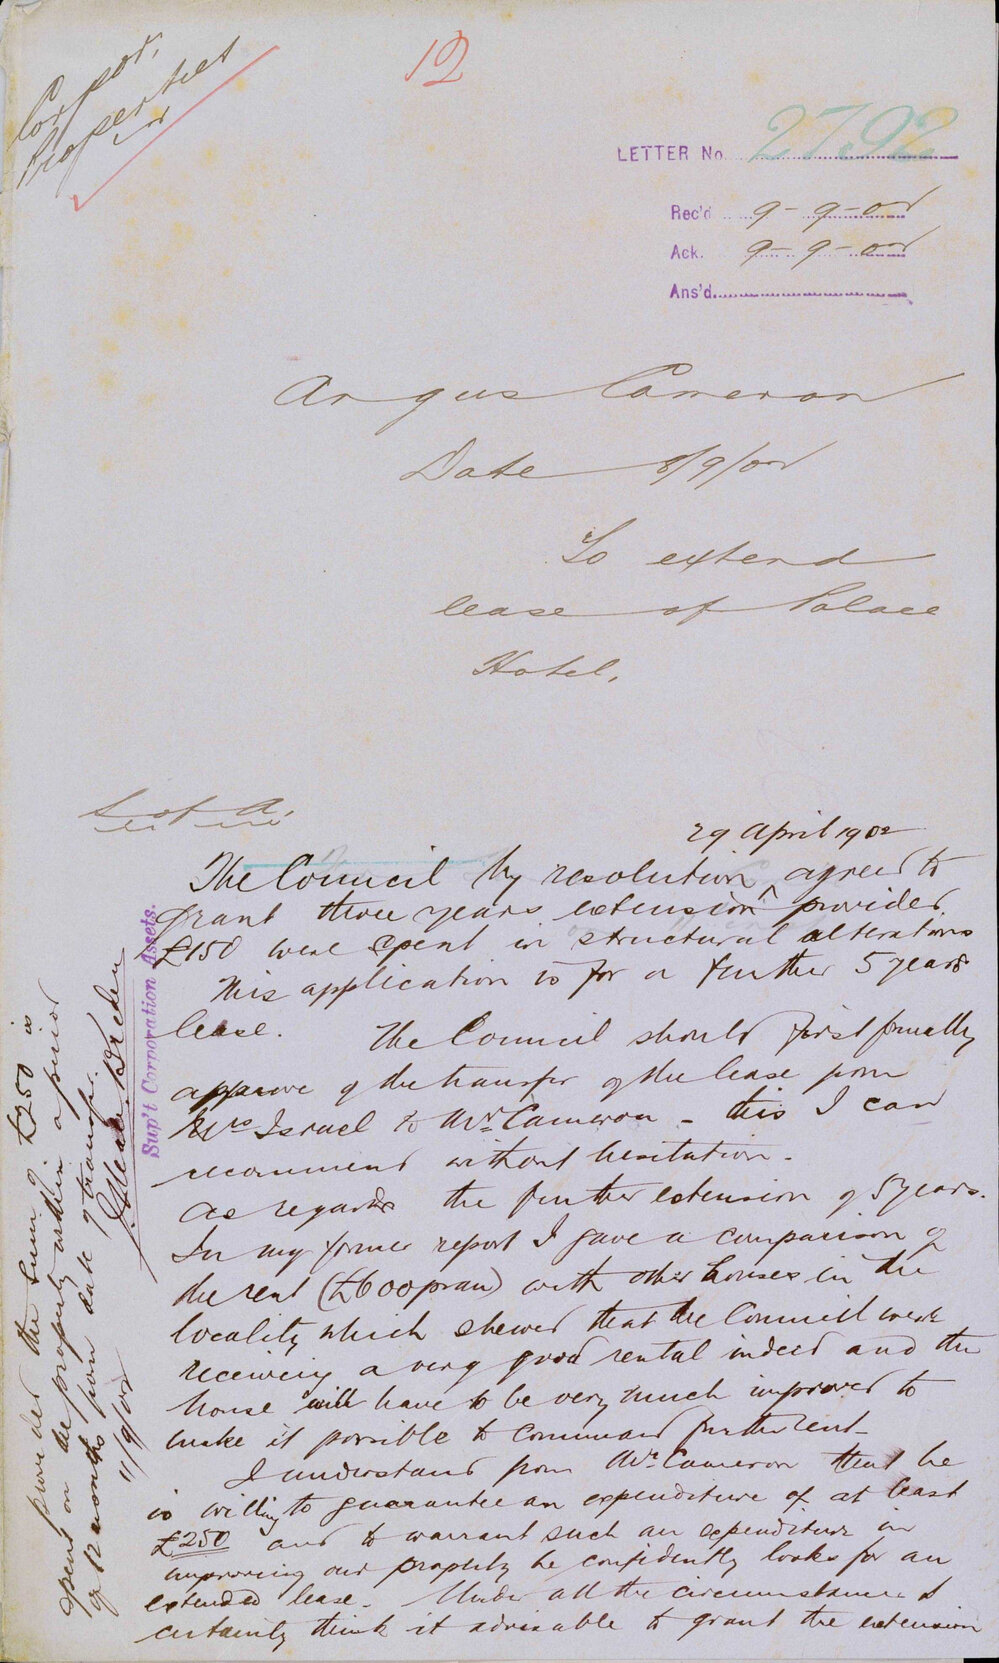 Corpor.
Properties
12
LETTER No. 2792
Rec'd 9-9-02
Ack. 9-9-02
Ans'd.
Angus Cameron
Date 8/9/02
To extend
lease of Palace
Hotel.
S of A.
29 April 1902
The Council by resolution ^ agreed to
grant three years extension provided
£150 were spent in structural alterations
This application is for a further 5 years
lease. The Council should first formally
approve of the transfer of the lease from
Mrs Israel to Mr. Cameron - this I can
recommend without hesitation.
As regards the further extension of 5 years.
In my former report I gave a comparison of
the rent (£600 p ann) with other houses in the
locality which shewed that the Council were
receiving a very good rental indeed and the
house will have to be very much improved to
make it possible to command further rent-
I understand from Mr. Cameron that he
is willing to guarantee an expenditure of at least
£250 and to warrant such an expenditure in
improving our property he confidently looks for an
extended lease. Under all the circumstances I
certainly think it advisable to grant the extension
provided the sum of £250 is
spent on the property within a period
of 12 months from date of transfer.
11/9/02
Sup't Corporation Assets.